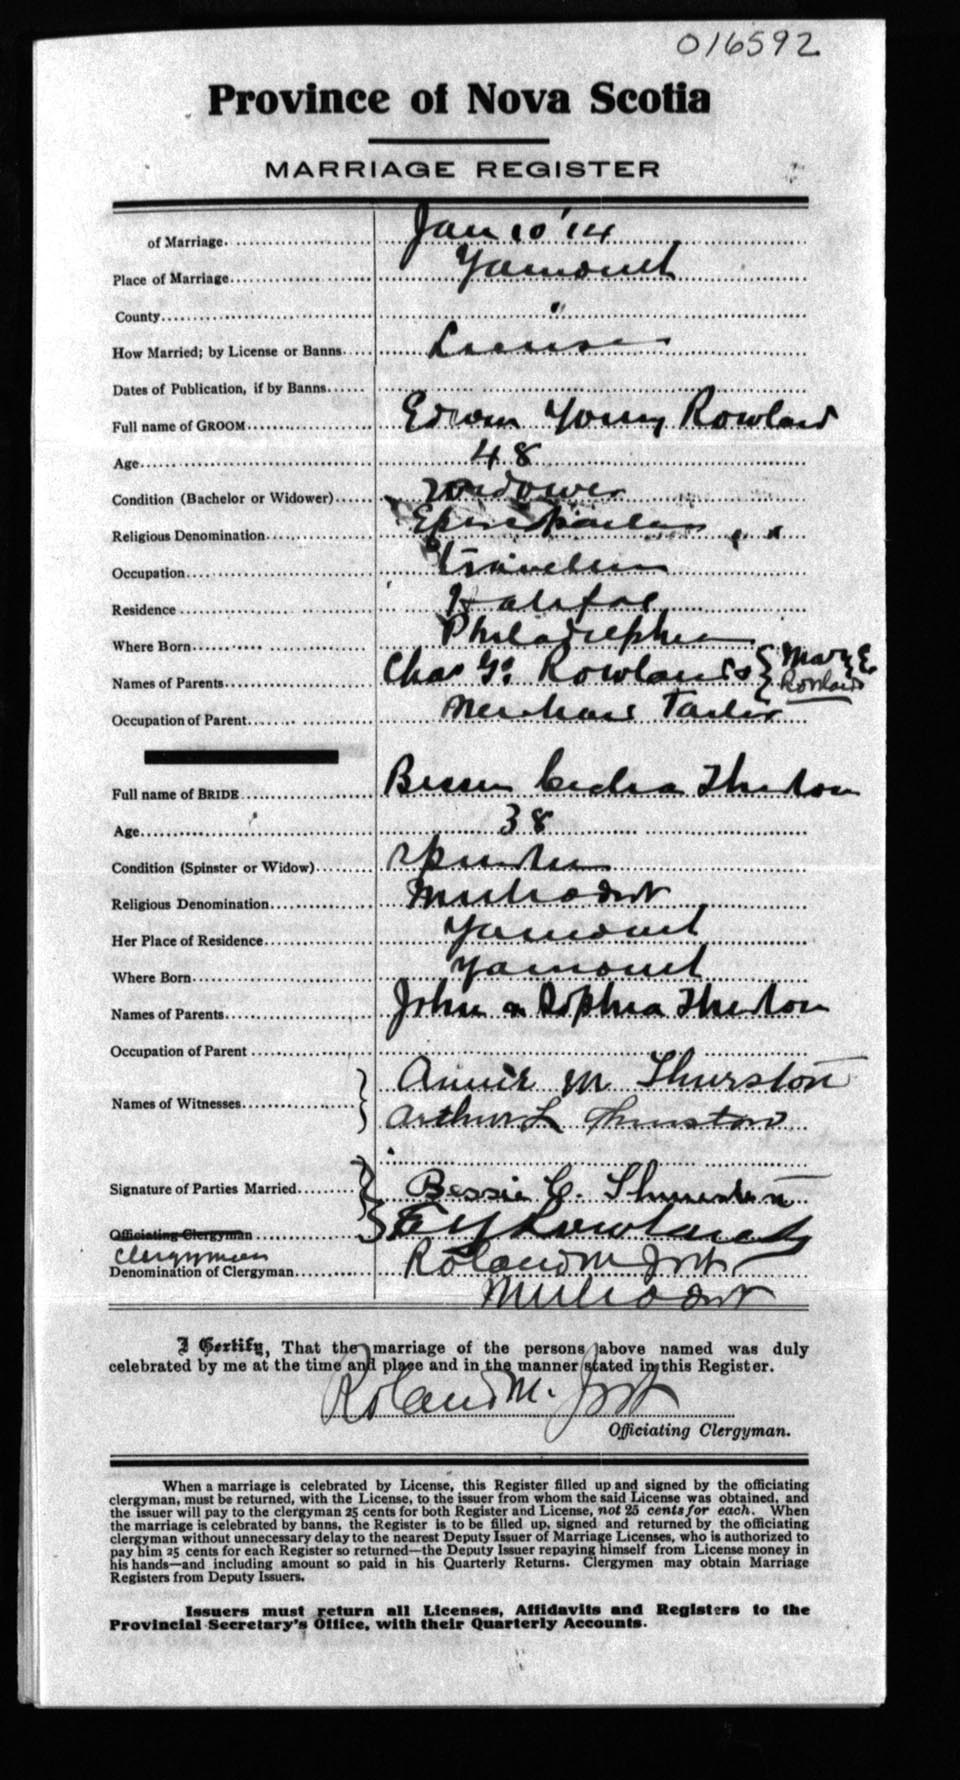 016592
Province of Nova Scotia
MARRIAGE REGISTER
of Marriage. Jan 10 '14
Place of Marriage Yarmouth
County "
How Married; by License or Banns License
Dates of Publication, if by Banns
Full name of GROOM Edwin Young Rowland
Age 48
Condition (Bachelor or Widower) Widower
Religious Denomination Episcopalian
Occupation Traveller
Residence Halifax
Where Born Philadelphia
Names of Parents Chas Y. Rowlands } Mary E. Rowlands
Occupation of Parent Merchant Tailor
Full name of BRIDE Bessie Thurston
Age 38
Condition (Spinster or Widow) Spinster
Religious Denomination Methodist
Her Place of Residence Yarmouth
Where Born Yarmouth
Names of Parents John & Sophia Thurston
Occupation of Parent
Names of Witnesses Annie M Thurston
Arthur L Thurston
Signature of Parties Married Bessie C. Thurston
E Y Rowlands
Officiating Clergyman
Clergyman Roland M
Denomination of Clergyman Methodist
I Certify, That the marriage of the persons above named was duly
celebrated by me at the time and place and in the manner stated in this Register.
Roland M.
Officiating Clergyman.
When a marriage is celebrated by License, this Register filled up and signed by the officiating
clergyman, must be returned, with the License, to the issuer from whom the said License was obtained, and
the issuer will pay to the clergyman 25 cents for both Register and License, not 25 cents for each. When
the marriage is celebrated by banns, the Register is to be filled up, signed and returned by the officiating
clergyman without unnecessary delay to the nearest Deputy Issuer of Marriage Licenses, who is authorized to
pay him 25 cents for each Register so returned—the Deputy Issuer repaying himself from License money in
his hands—and including amount so paid in his Quarterly Returns. Clergymen may obtain Marriage
Registers from Deputy Issuers.
Issuers must return all Licenses, Affidavits and Registers to the
Provincial Secretary's Office, with their Quarterly Accounts.